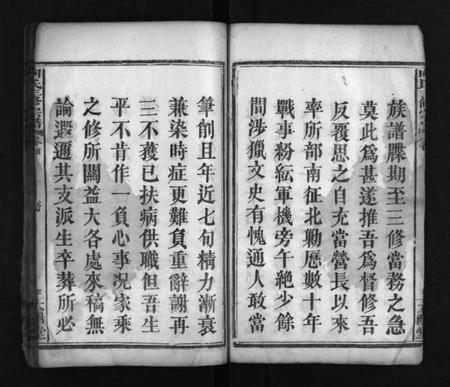 族譜牒期至三修當務之急
莫此爲甚遂推吾爲督修吾
反覆思之自充當營長以來
率所部南征北勦歷數十年
戰事粉紜軍機旁午絶少餘
間涉獵文史有愧通人敢當
筆削且年近七旬精力漸衰
兼染時症更難負重辭謝再
三不獲已扶病供職但吾生
平不肯作一負心事况家乘
之修所關益大各處來稿無
論遐邇其支派生卒葬所必